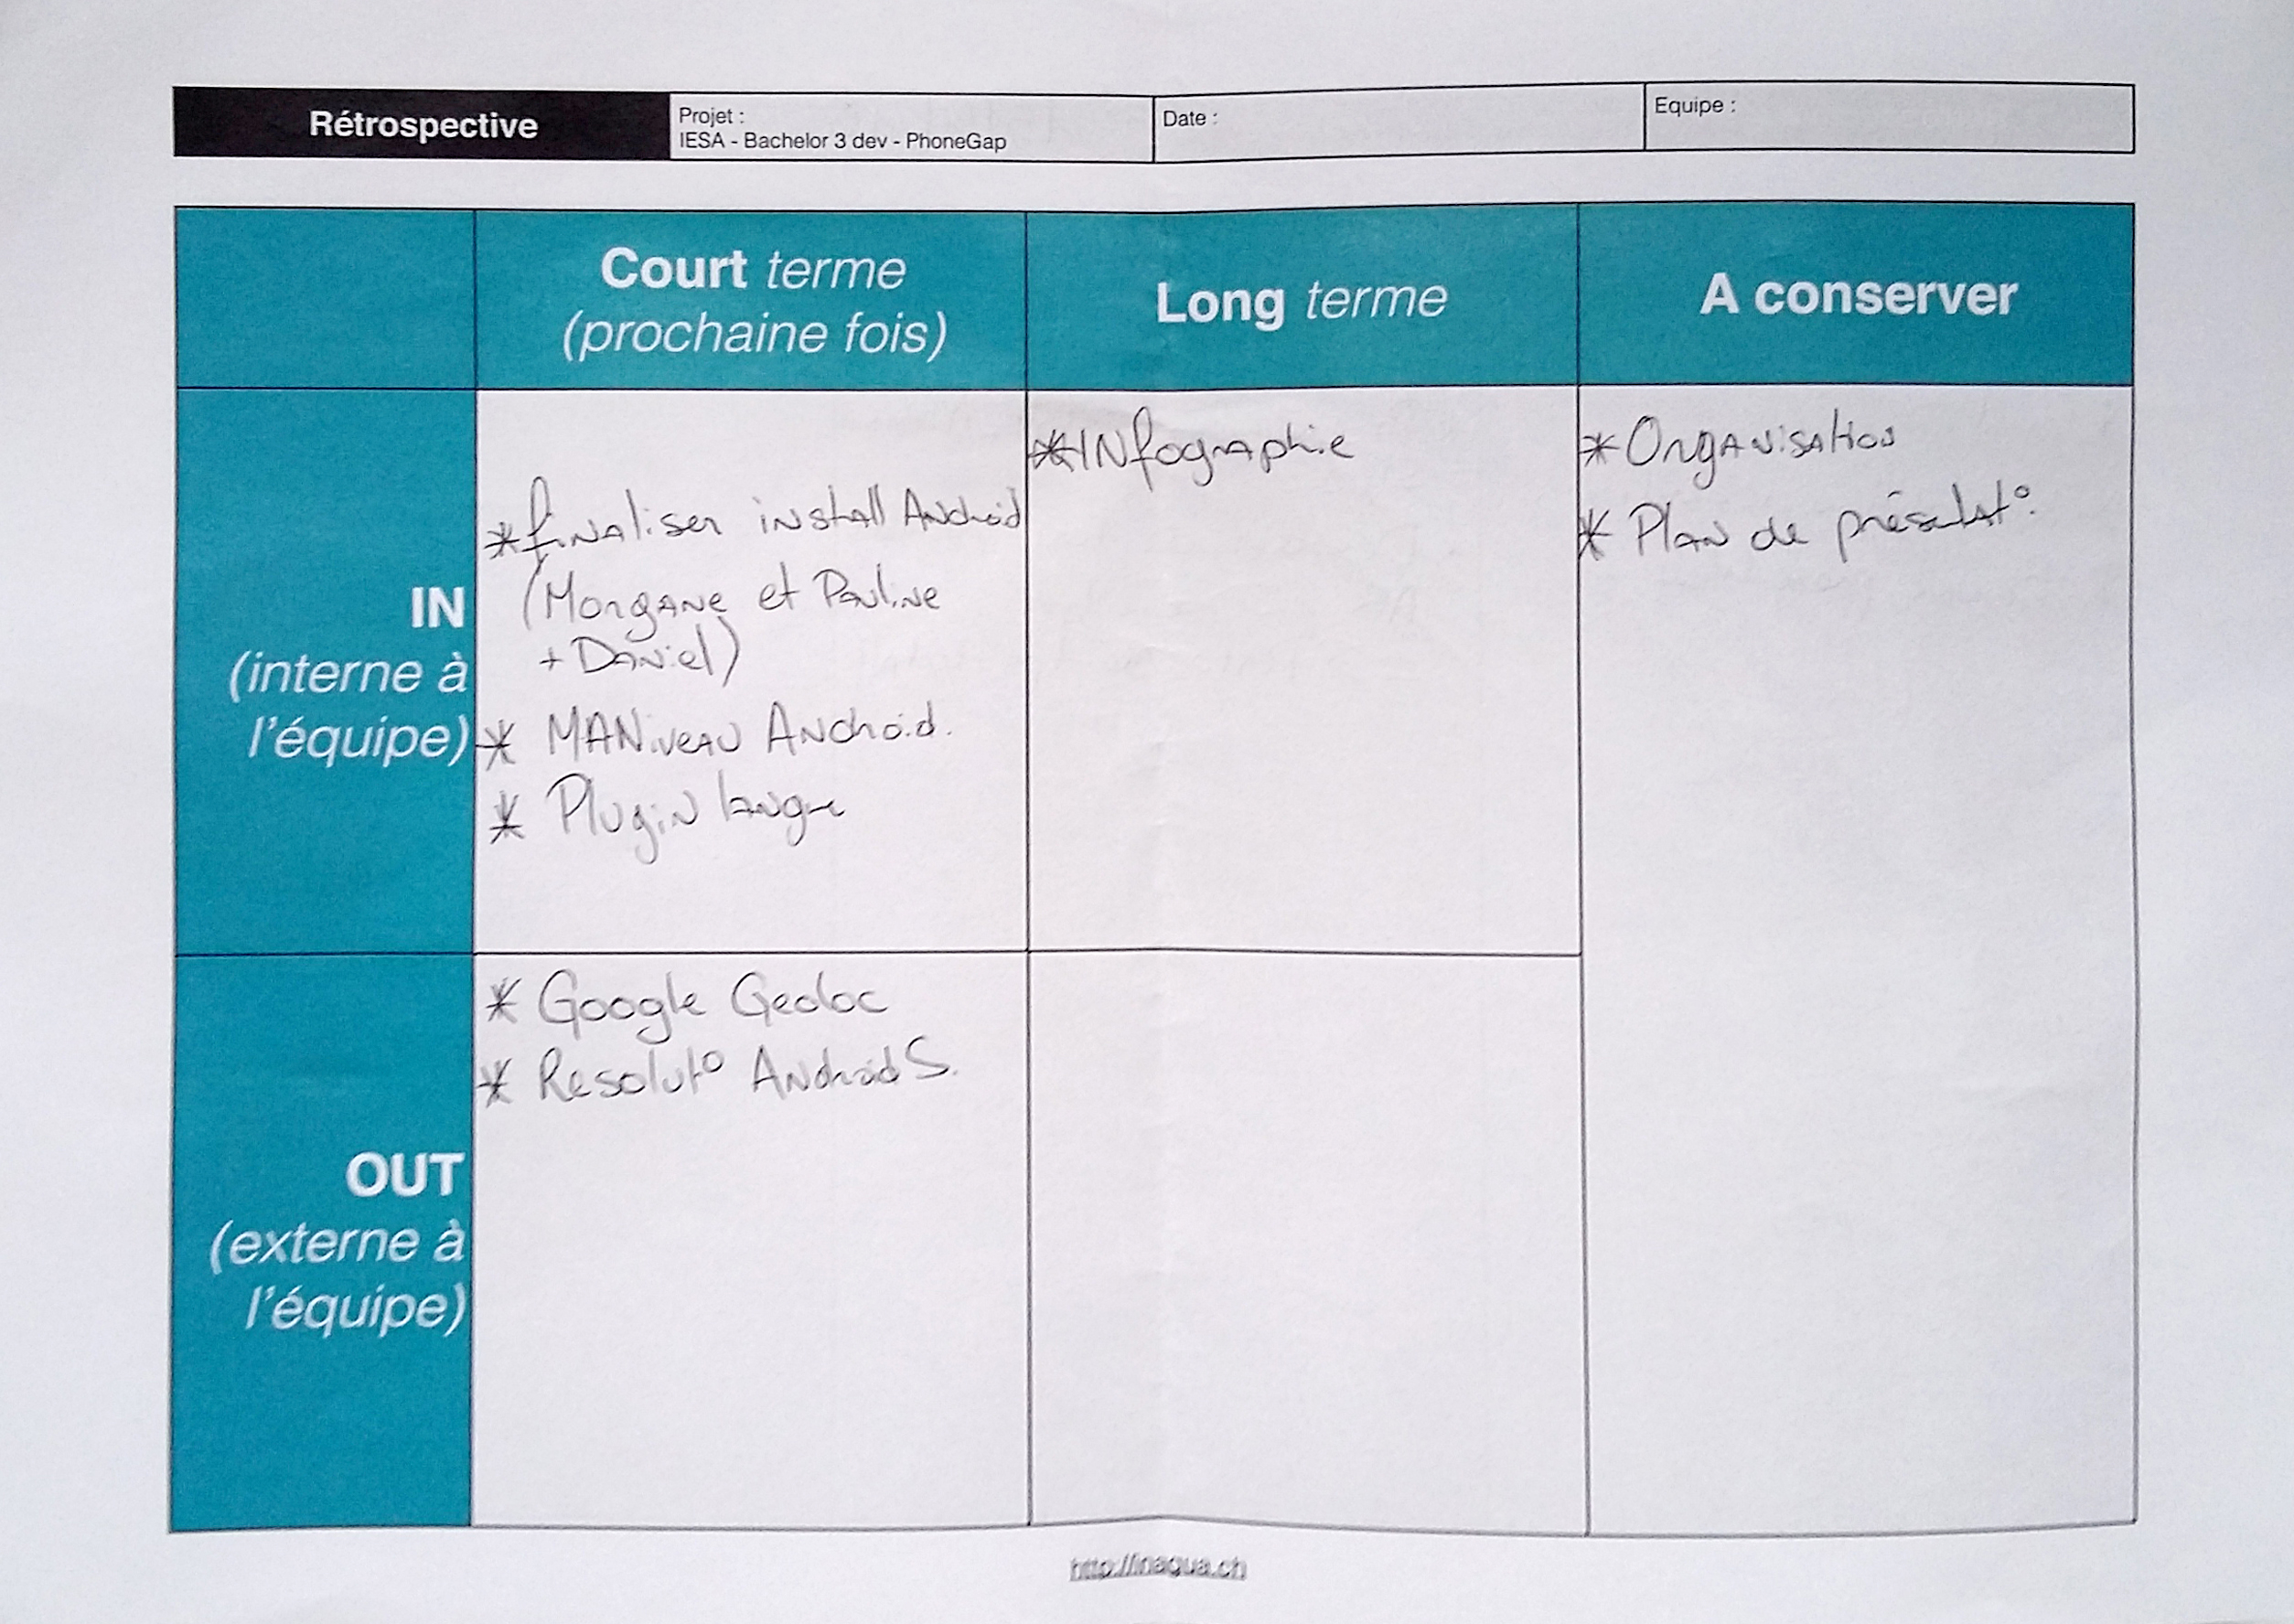 Rétrospective
Projet :
IESA - Bachelor 3 dev - PhoneGap
Date :
Equipe :
Court terme
(prochaine fois)
Long terme
A conserver
IN
(interne à
l'équipe)
* finaliser install Android
(Morgane et Pauline
+ Daniel)
* MANiveau Android.
* Plugin langue
* INfographie
* Organisation
* Plan de présentat°.
OUT
(externe à
l'équipe)
* Google Geoloc
* Resolut° Android S.
http://inaqua.ch